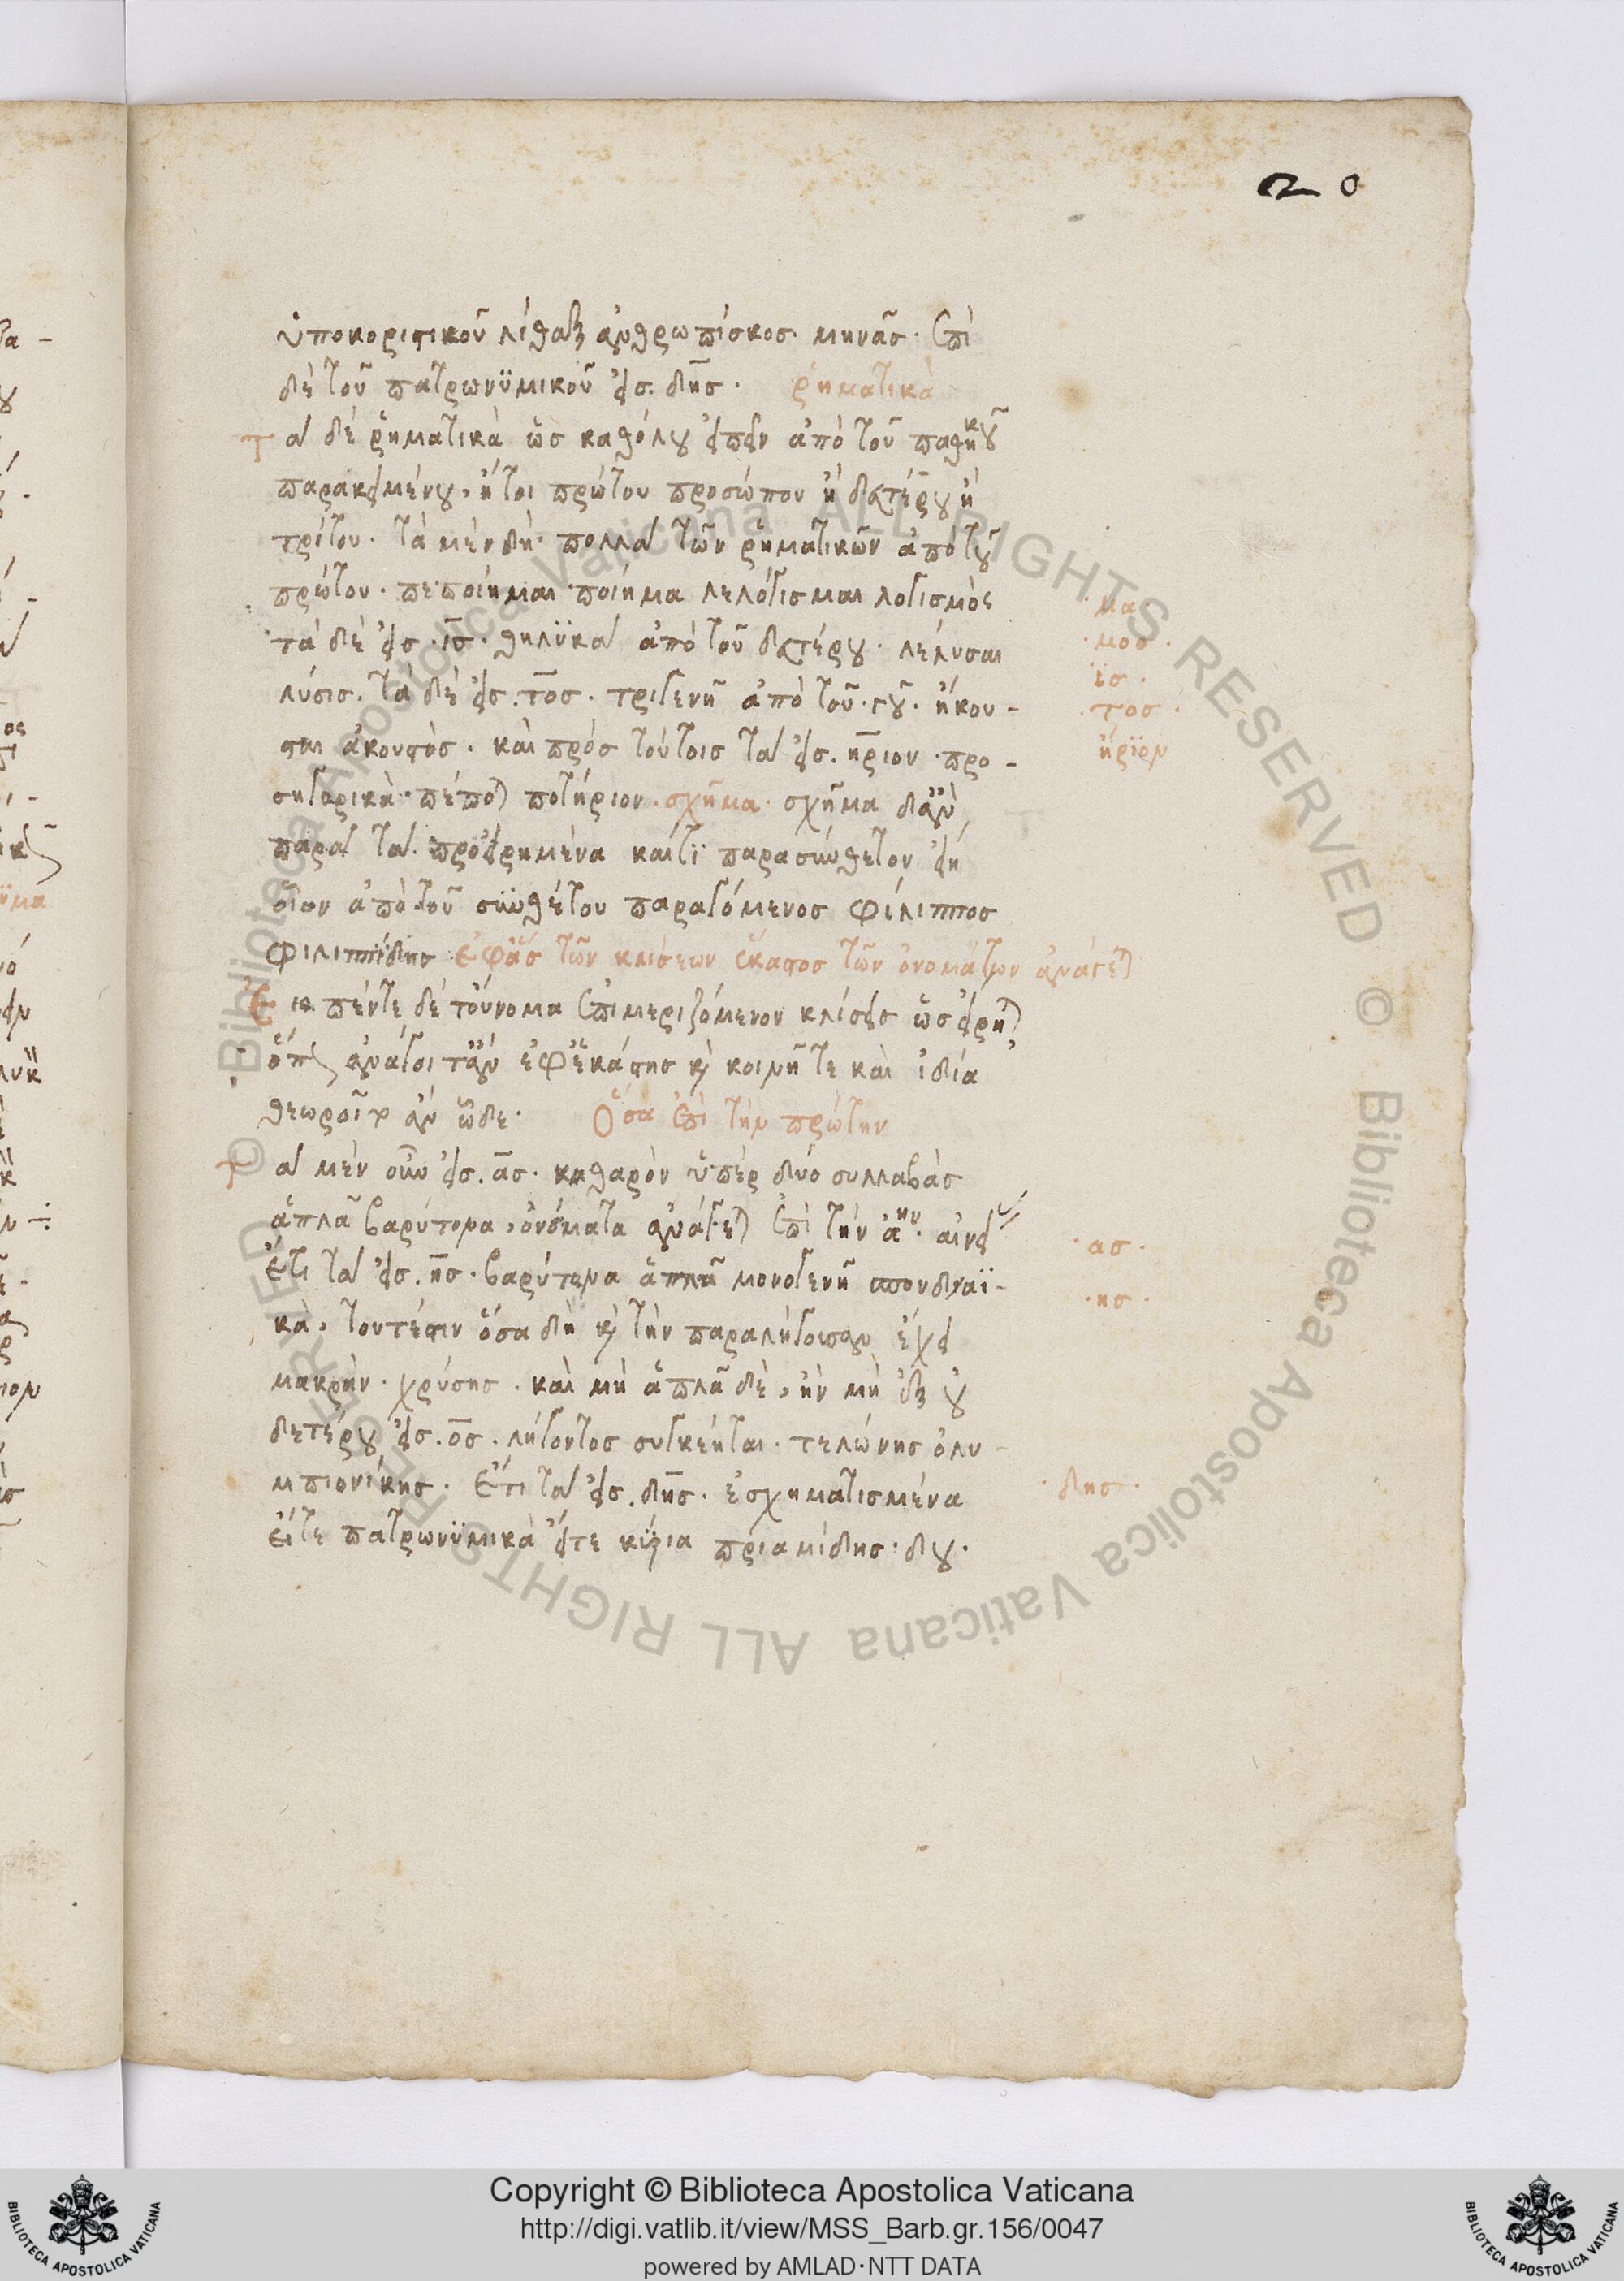 20
ὑποκοριστικοῦ λίθαξ ἀνθρωπίσκος. μηνᾶς. ἐπὶ
δὲ τοῦ πατρωνϋμικοῦ εἰς. δης. ῥηματικὰ
Τὰ δὲ ῥηματικὰ ὡς καθόλου εἰπεῖν ἀπὸ τοῦ παθηκοῦ
παρακειμένου, ἤτοι πρώτου προσώπου ἢ δευτέρου ἢ
τρίτου. τὰ μὲν δὴ πολλὰ τῶν ῥηματικῶν ἀπὸ τοῦ
πρώτου. πεποίημαι ποίημα λελόγισμαι λογισμὸς
· μα
τὰ δὲ εἰς. ις. θηλϋκὰ ἀπὸ τοῦ δευτέρου. λέλυσαι
· μοσ ·
λύσις. τὰ δὲ εἰς. τος. τριγενῆ ἀπὸ τοῦ. γου. ἤκου-
ϊσ ·
· τοσ ·
σται ἀκουστὸς. καὶ πρὸς τούτοις τὰ εἰς. ήριον. προ-
ήρϊον
σηγορικὰ. πέποται ποτήριον. σχῆμα. σχῆμα δ' ἂν
παρὰ τὰ προειρημένα καίτϊ παρασύνθετον εἴη
οἷον ἀπὸ τοῦ σϋνθέτου παραγόμενος φίλιππος
φιλιππίδης ἐφ' ἃς τῶν κλίσεων ἕκαστος τῶν ὀνομάτων ἀνάγεται
Εἰς πέντε δὲ τοὔνομα ἐπιμεριζόμενον κλίσεις ὡς εἴρηται
ὅπως ἀνάγοιτ' ἂν ἐφ' ἑκάστης καὶ κοινῇ τε καὶ ἰδία
θεωροῖτ' ἂν ὧδε. Ὅσα ἐπὶ τὴν πρώτην
Τὰ μὲν οὖν εἰς. ας. καθαρὸν ὑπὲρ δύο συλλαβὰς
ἁπλᾶ βαρύτονα, ὀνόματα ἀνάγεται ἐπὶ τὴν αην.
· ασ ·
ἔτι τὰ εἰς. ης. βαρύτονα ἁπλᾶ μονογενῆ σπονδειαϊ-
· ησ ·
κὰ, τουτέστιν ὅσα δὴ καὶ τὴν παραλήγουσαν ἔχει
μακρὴν. χρύσης. καὶ μὴ ἁπλᾶ δὲ, ἢν μὴ ἐξ οὐ
δετέρου εἰς. ος. λήγοντος συγκέηται. τελώνης ὀλυ-
μπιονίκης. ἔτι τὰ εἰς. δης. ἐσχηματισμένα
· δησ ·
εἴτε πατρωνϋμικὰ εἴτε κύρια πριαμίδης. δου.
Copyright © Biblioteca Apostolica Vaticana
http://digi.vatlib.it/view/MSS_Barb.gr.156/0047
powered by AMLAD·NTT DATA
BIBLIOTECA APOSTOLICA VATICANA
BIBLIOTECA APOSTOLICA VATICANA
© Biblioteca Apostolica Vaticana ALL RIGHTS RESERVED © Biblioteca Apostolica Vaticana ALL RIGHTS RESERVED